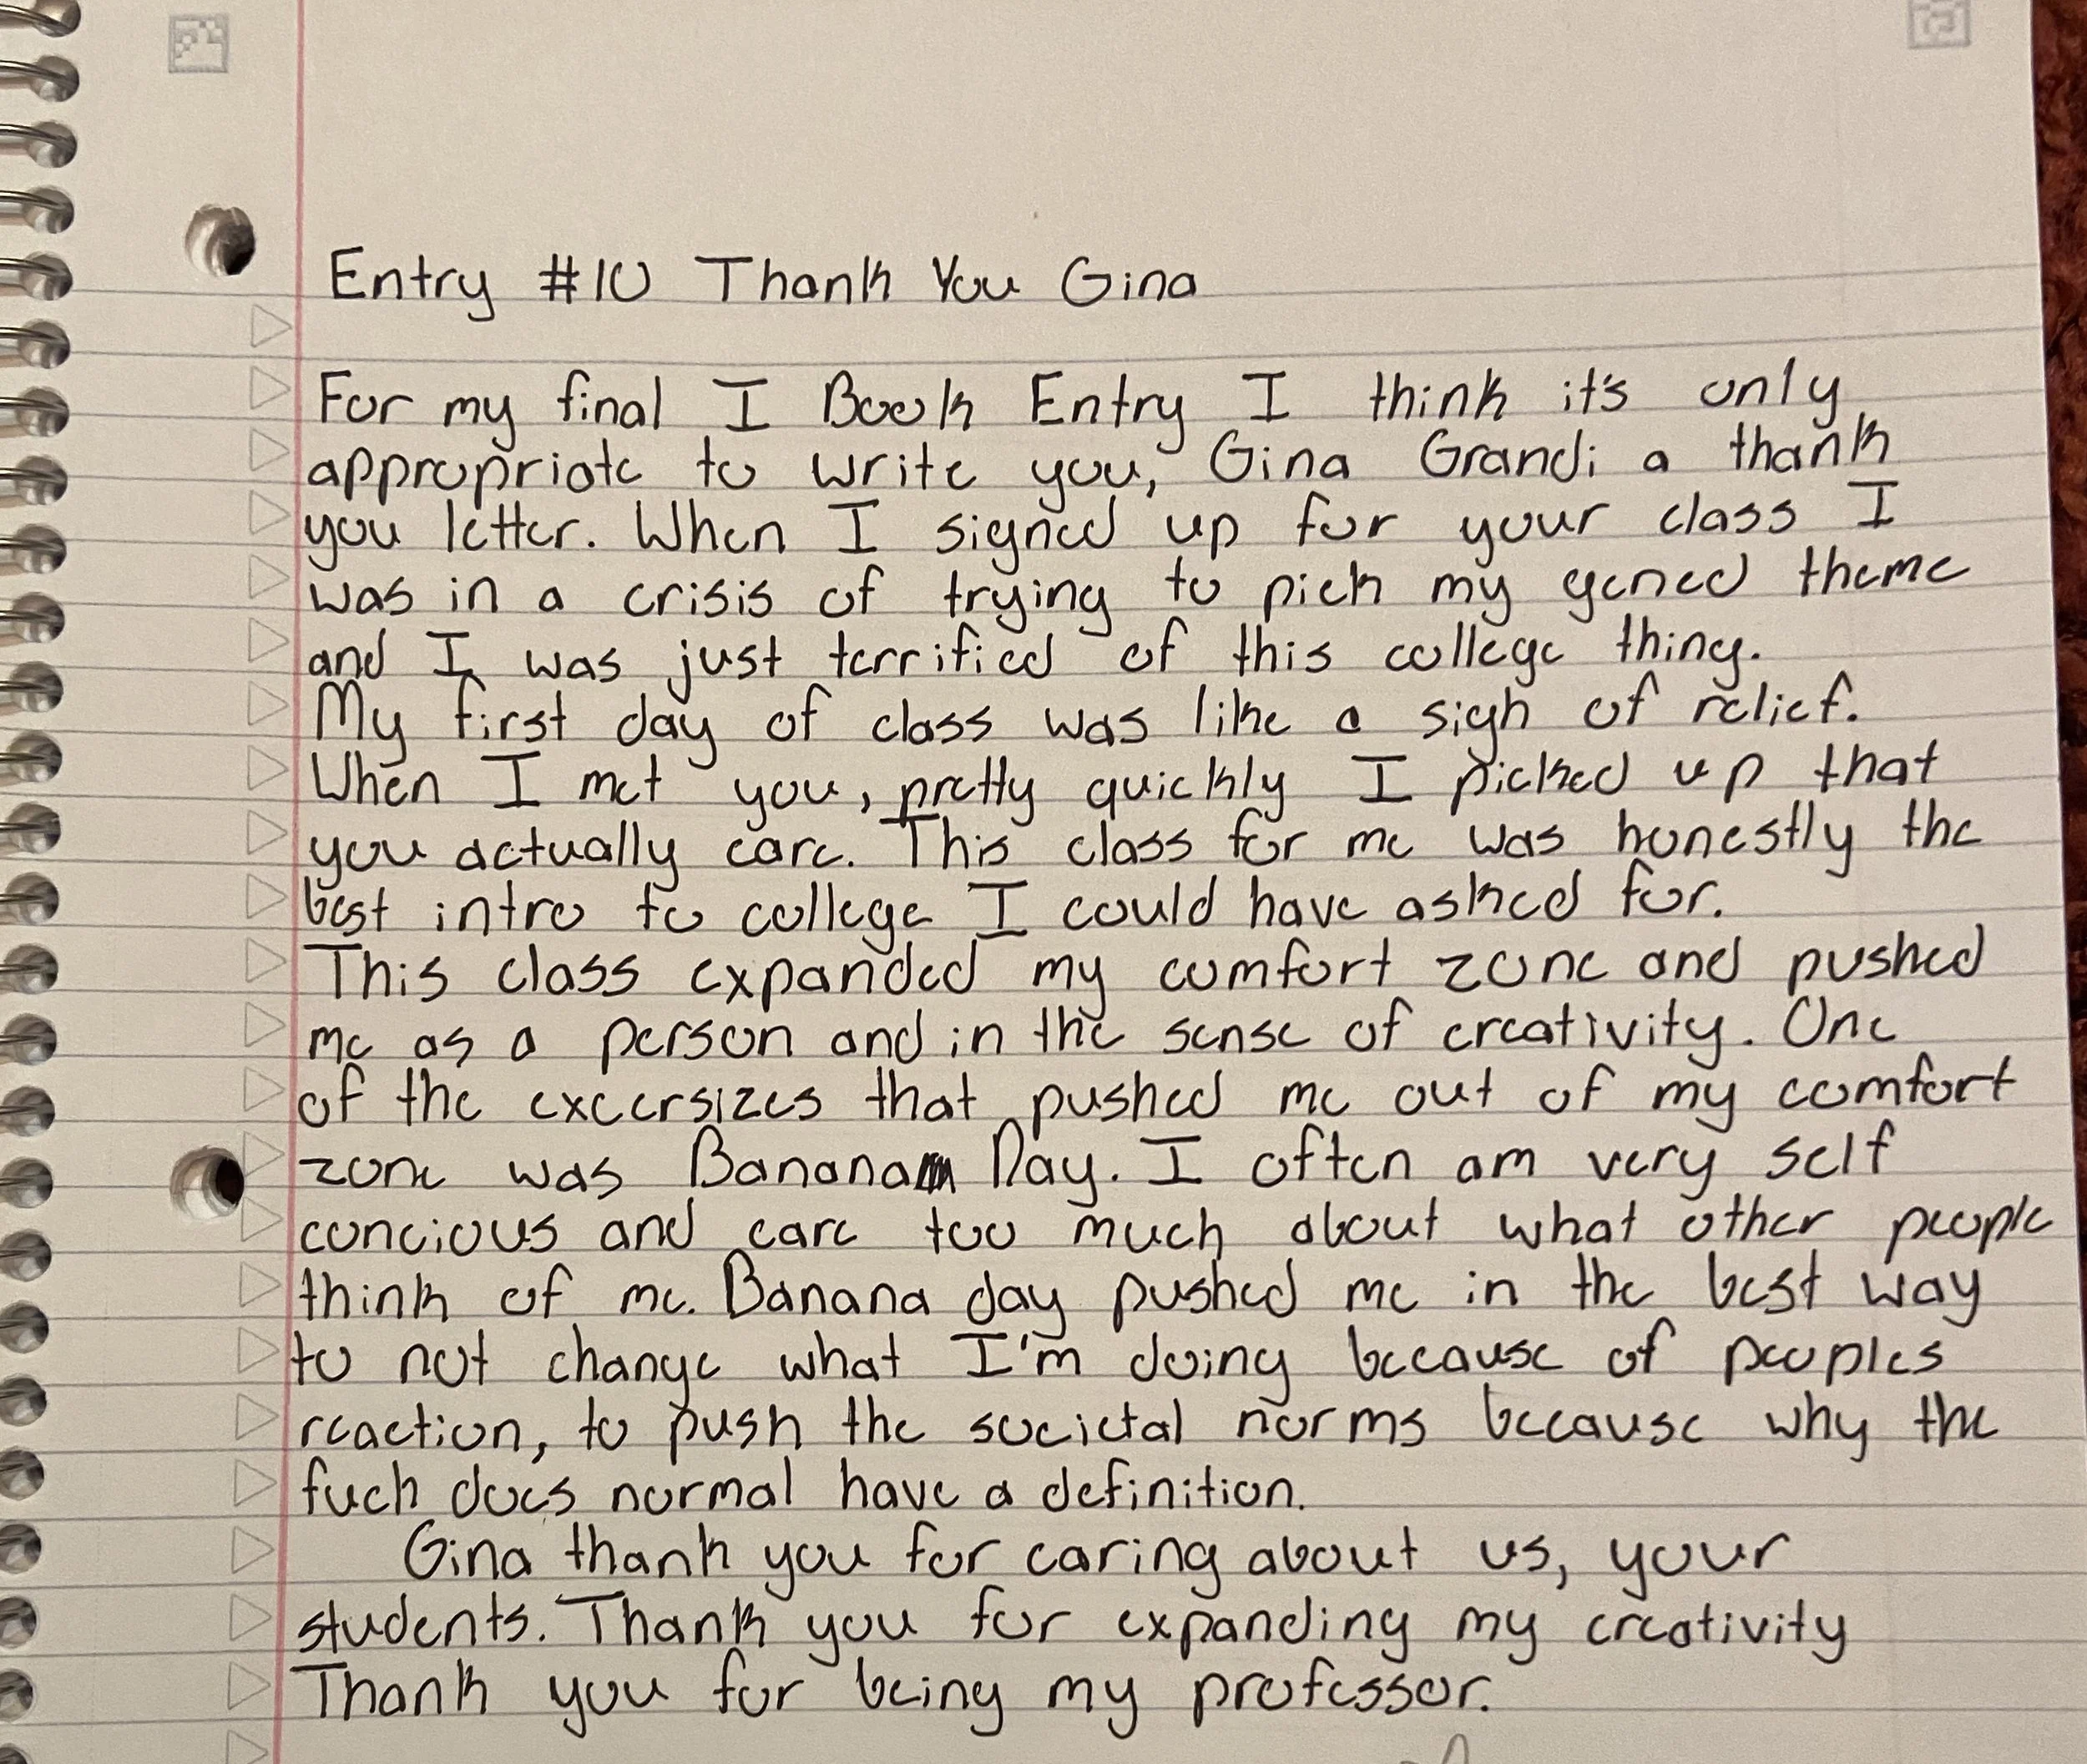 Entry #10 Thank You Gina
For my final I Book Entry I think it's only
appropriate to write you, Gina Grandi a thank
you letter. When I signed up for your class I
was in a crisis of trying to pick my gened theme
and I was just terrified of this college thing.
My first day of class was like a sigh of relief.
When I met you, pretty quickly I picked up that
you actually care. This class for me was honestly the
best intro to college I could have asked for.
This class expanded my comfort zone and pushed
me as a person and in the sense of creativity. One
of the excersizes that pushed me out of my comfort
zone was Banana Day. I often am very self
concious and care too much about what other people
think of me. Banana day pushed me in the best way
to not change what I'm doing because of peoples
reaction, to push the societal norms because why the
fuck does normal have a definition.
Gina thank you for caring about us, your
students. Thank you for expanding my creativity
Thank you for being my professor.